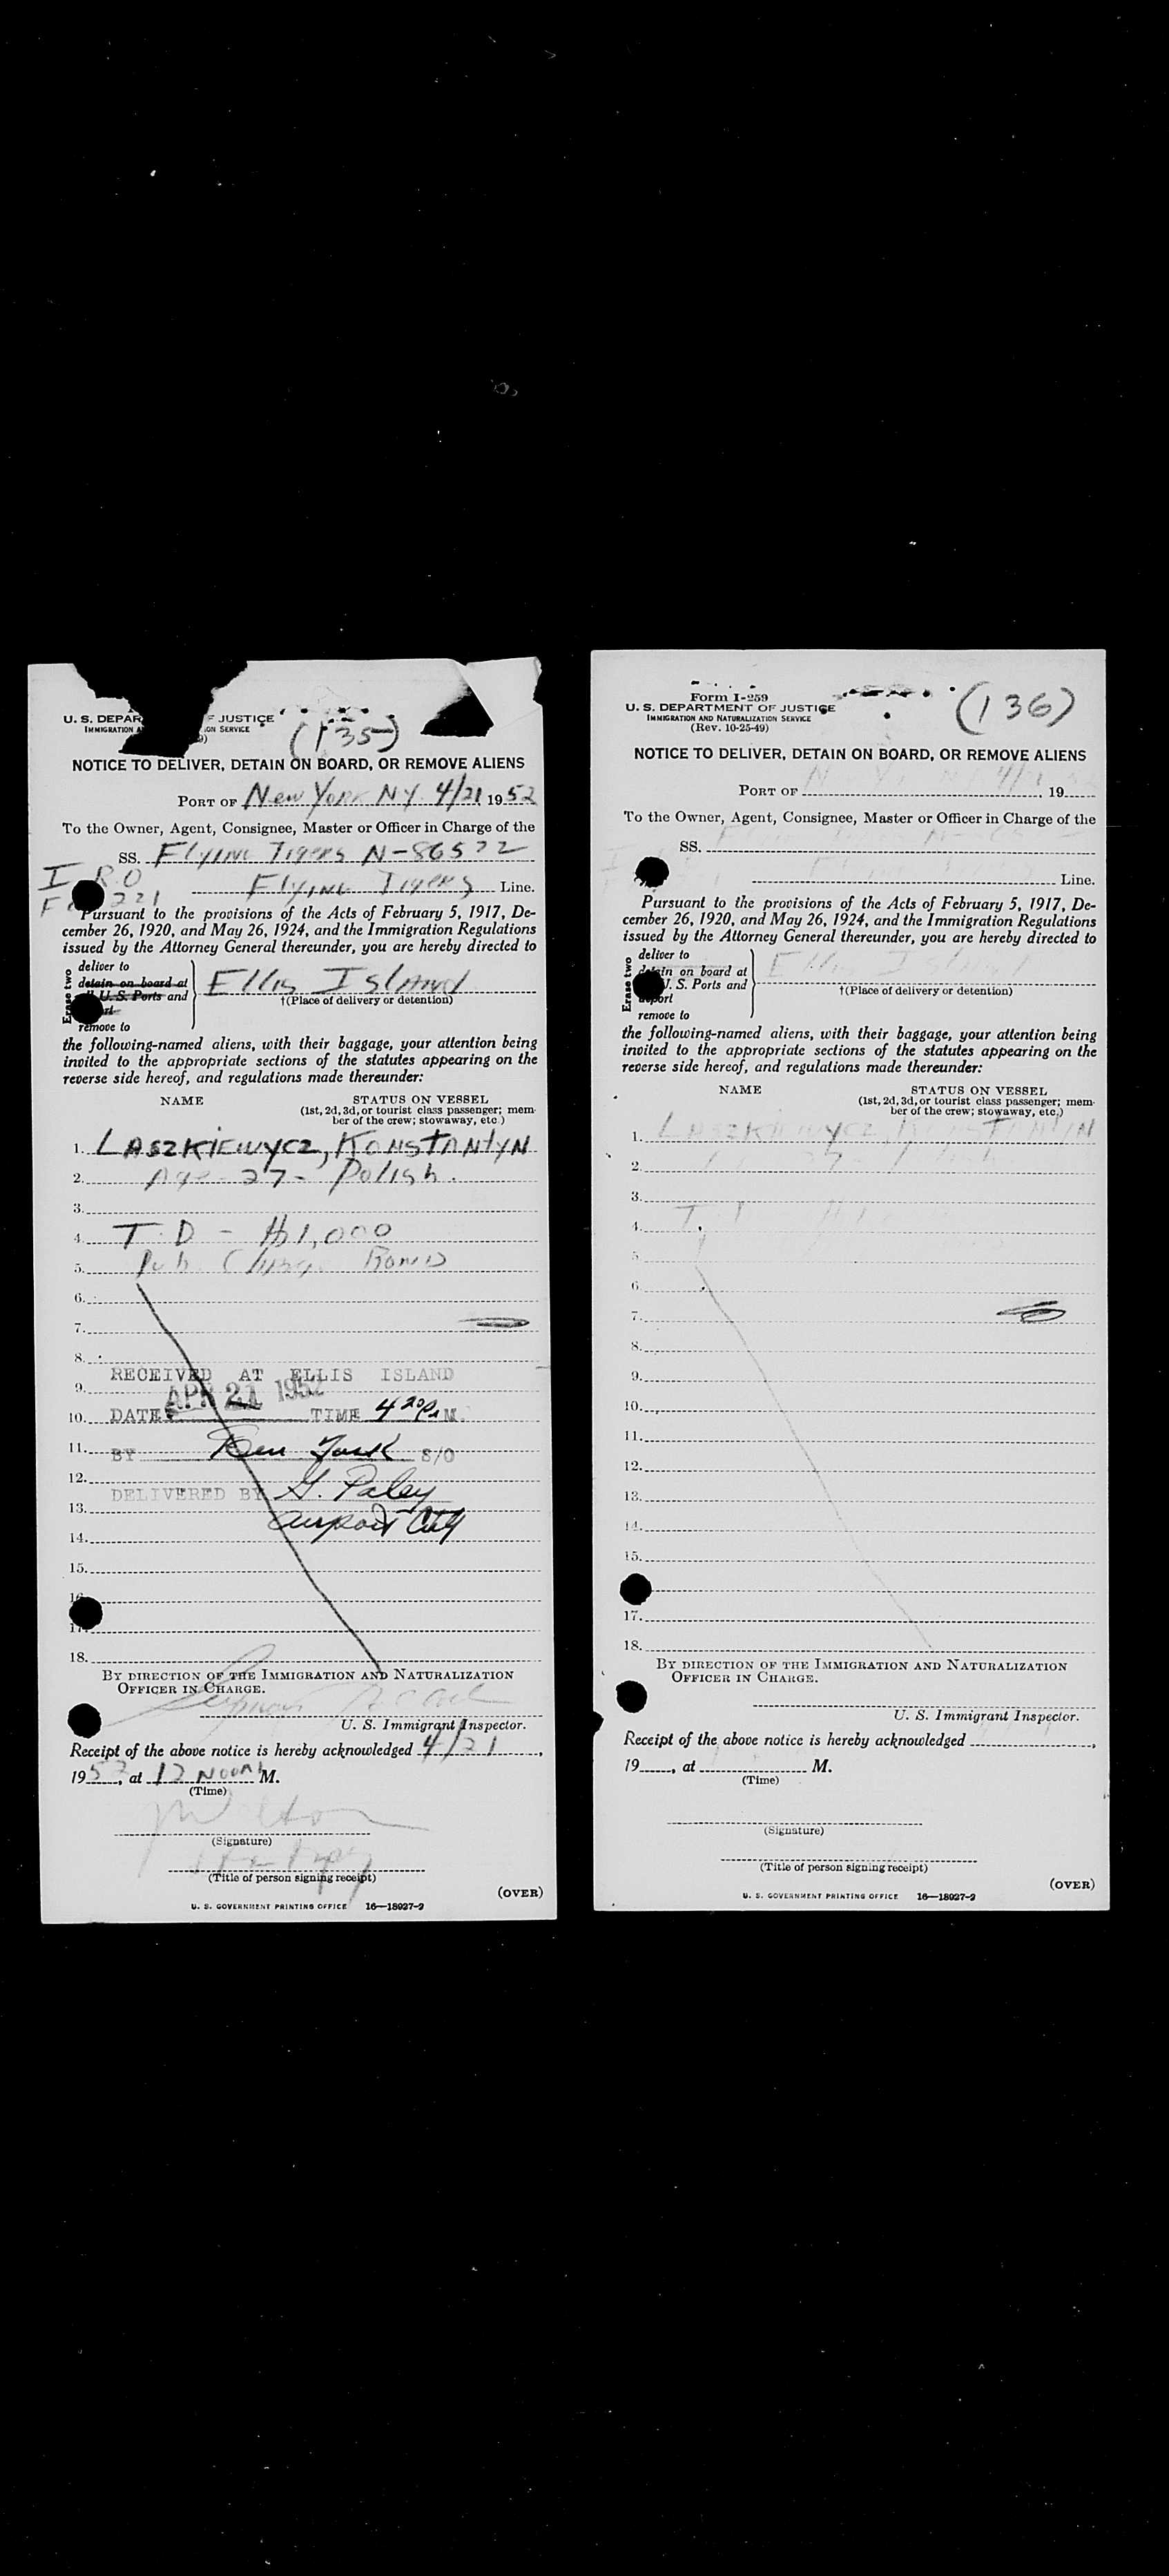 U. S. DEPAR F JUSTICE
IMMIGRATION A ION SERVICE
9)
(135)
NOTICE TO DELIVER, DETAIN ON BOARD, OR REMOVE ALIENS
PORT OF New York N.Y. 4/21 1952
To the Owner, Agent, Consignee, Master or Officer in Charge of the
SS. Flying Tigers N-86522
I R O
F 221 Flying Tigers Line.
Pursuant to the provisions of the Acts of February 5, 1917, De-
cember 26, 1920, and May 26, 1924, and the Immigration Regulations
issued by the Attorney General thereunder, you are hereby directed to
Erase two
deliver to
detain on board at
U. S. Ports and
remove to
Ellis Island
†(Place of delivery or detention)
the following-named aliens, with their baggage, your attention being
invited to the appropriate sections of the statutes appearing on the
reverse side hereof, and regulations made thereunder:
NAME STATUS ON VESSEL
(1st, 2d, 3d, or tourist class passenger; mem-
ber of the crew; stowaway, etc.)
1. LASZKIEWYCZ, KONSTANTYN
2. Age - 27 - Polish.
3.
4. T.D - $1,000
5. Pub. Charge Bond
6.
7.
8.
RECEIVED AT ELLIS ISLAND
9. APR 21 1952
10. DATE TIME 4 20 P. M.
11. BY Ben York S/O
12.
DELIVERED BY G. Paley
13.
14.
15.
16.
17.
18.
BY DIRECTION OF THE IMMIGRATION AND NATURALIZATION
OFFICER IN CHARGE.
U. S. Immigrant Inspector.
Receipt of the above notice is hereby acknowledged 4/21,
1952, at 12 Noon M.
(Time)
(Signature)
(Title of person signing receipt)
(OVER)
U. S. GOVERNMENT PRINTING OFFICE 16—18927-2
Form I-259
U. S. DEPARTMENT OF JUSTICE
IMMIGRATION AND NATURALIZATION SERVICE
(Rev. 10-25-49)
(136)
NOTICE TO DELIVER, DETAIN ON BOARD, OR REMOVE ALIENS
PORT OF N Y 4/21, 19
To the Owner, Agent, Consignee, Master or Officer in Charge of the
SS.
Line.
Pursuant to the provisions of the Acts of February 5, 1917, De-
cember 26, 1920, and May 26, 1924, and the Immigration Regulations
issued by the Attorney General thereunder, you are hereby directed to
Erase two
deliver to
detain on board at
U. S. Ports and
deport
remove to
Ellis Island
†(Place of delivery or detention)
the following-named aliens, with their baggage, your attention being
invited to the appropriate sections of the statutes appearing on the
reverse side hereof, and regulations made thereunder:
NAME STATUS ON VESSEL
(1st, 2d, 3d, or tourist class passenger; mem-
ber of the crew; stowaway, etc.)
1. LASZKIEWYCZ, KONSTANTYN
2. 27
3.
4. T.
5.
6.
7.
8.
9.
10.
11.
12.
13.
14.
15.
17.
18.
BY DIRECTION OF THE IMMIGRATION AND NATURALIZATION
OFFICER IN CHARGE.
U. S. Immigrant Inspector.
Receipt of the above notice is hereby acknowledged ,
19 , at M.
(Time)
(Signature)
(Title of person signing receipt)
(OVER)
U. S. GOVERNMENT PRINTING OFFICE 16—18927-2